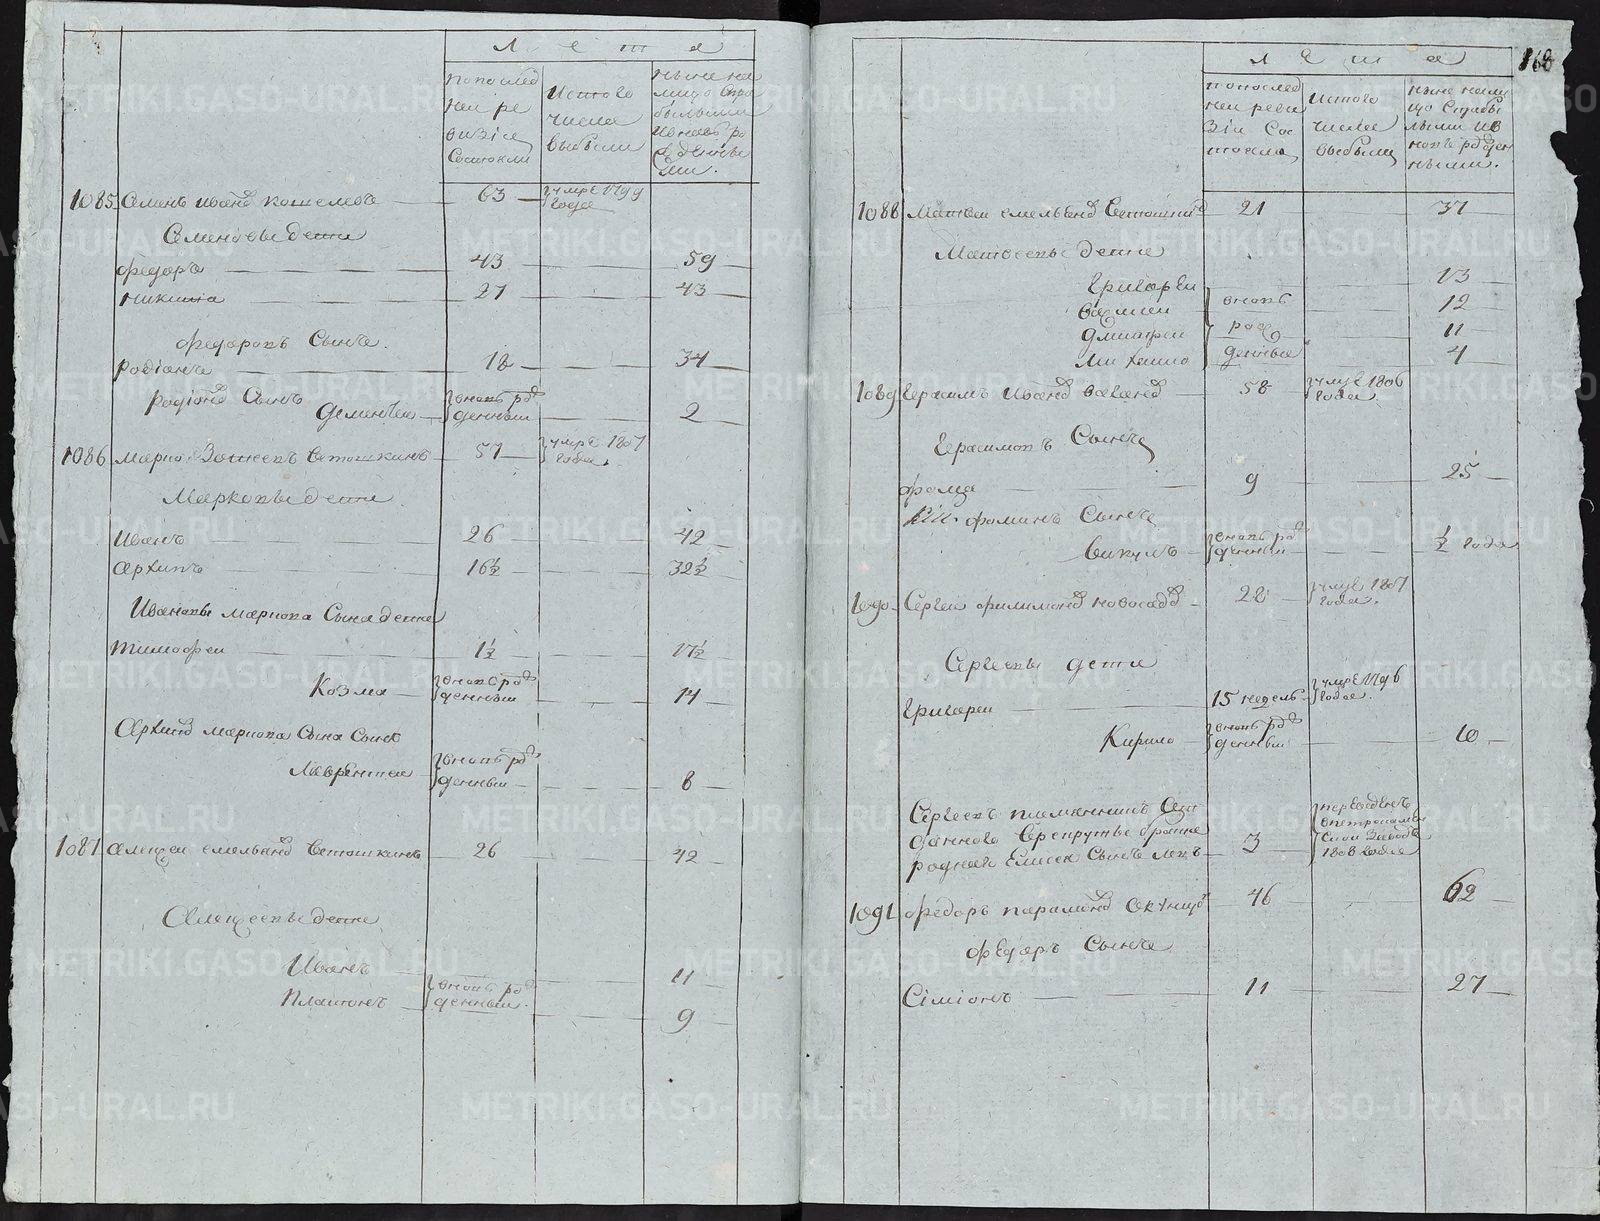 лета
попослед
ней ре
визіи
Состояли
Истого
числа
выбыли
ныне на
лицо Спри
былыми
Ивновь ро
жденны
ми.
1085. Семенъ ивановъ кошелевъ 63 умре 1799
года
Семеновы дети
федоръ 43 59
никита 27 43
федоровъ Сынъ.
родіонъ 18 34
родіоновъ Сынъ
дементеи вновь рож
денныи 2
1086 марко Зотеевъ Ветошкинъ 57 умре 1807
года.
Марковы дети
Иванъ 26 42
архипъ 16½ 32½
Ивановы маркова Сына дети
тимофеи 1½ 17½
Козма вновь рож
денныи 14
Архиповъ маркова Сына Сынъ
Лаврентеи вновь рож
денныи 8
1087 алексеи емельяновъ Ветошкинъ 26 42
Алексеевы дети
Иванъ 11
Платонъ вновь рож
денныи. 9
168
лета
попослед
ней реви
зіи Сос
тояли
Истого
числа
выбыли
ныне нали
цо Сприбы
лыми ив
новь рожден
ными.
1088 Матвеи емельяновъ Ветошкинъ 21 37
Матвеевы дети
Григореи 13
василеи вновь 12
дмитреи рож 11
михаило денные 4
1089 Герасимъ Ивановъ 58 умре 1806
года
Герасимовъ Сынъ
фома 9 25
фоминъ Сынъ
Викулъ вновь рож
денныи ½ года
1090. Сергеи филимоновъ новосадовъ 22 умре 1807
года.
Сергеевы дети
Григореи 15 недель умре 1796
года.
Кирило вновь рож
денныи 10
Сергеевъ племянникъ От
даннаго Врекруты брата
роднаго Елисея Сынъ 3 переведенъ
впетрокамен
Скои Заводъ
1808 года
1091 федоръ парамоновъ 46 62
федоръ Сынъ
Сіміонъ 11 27